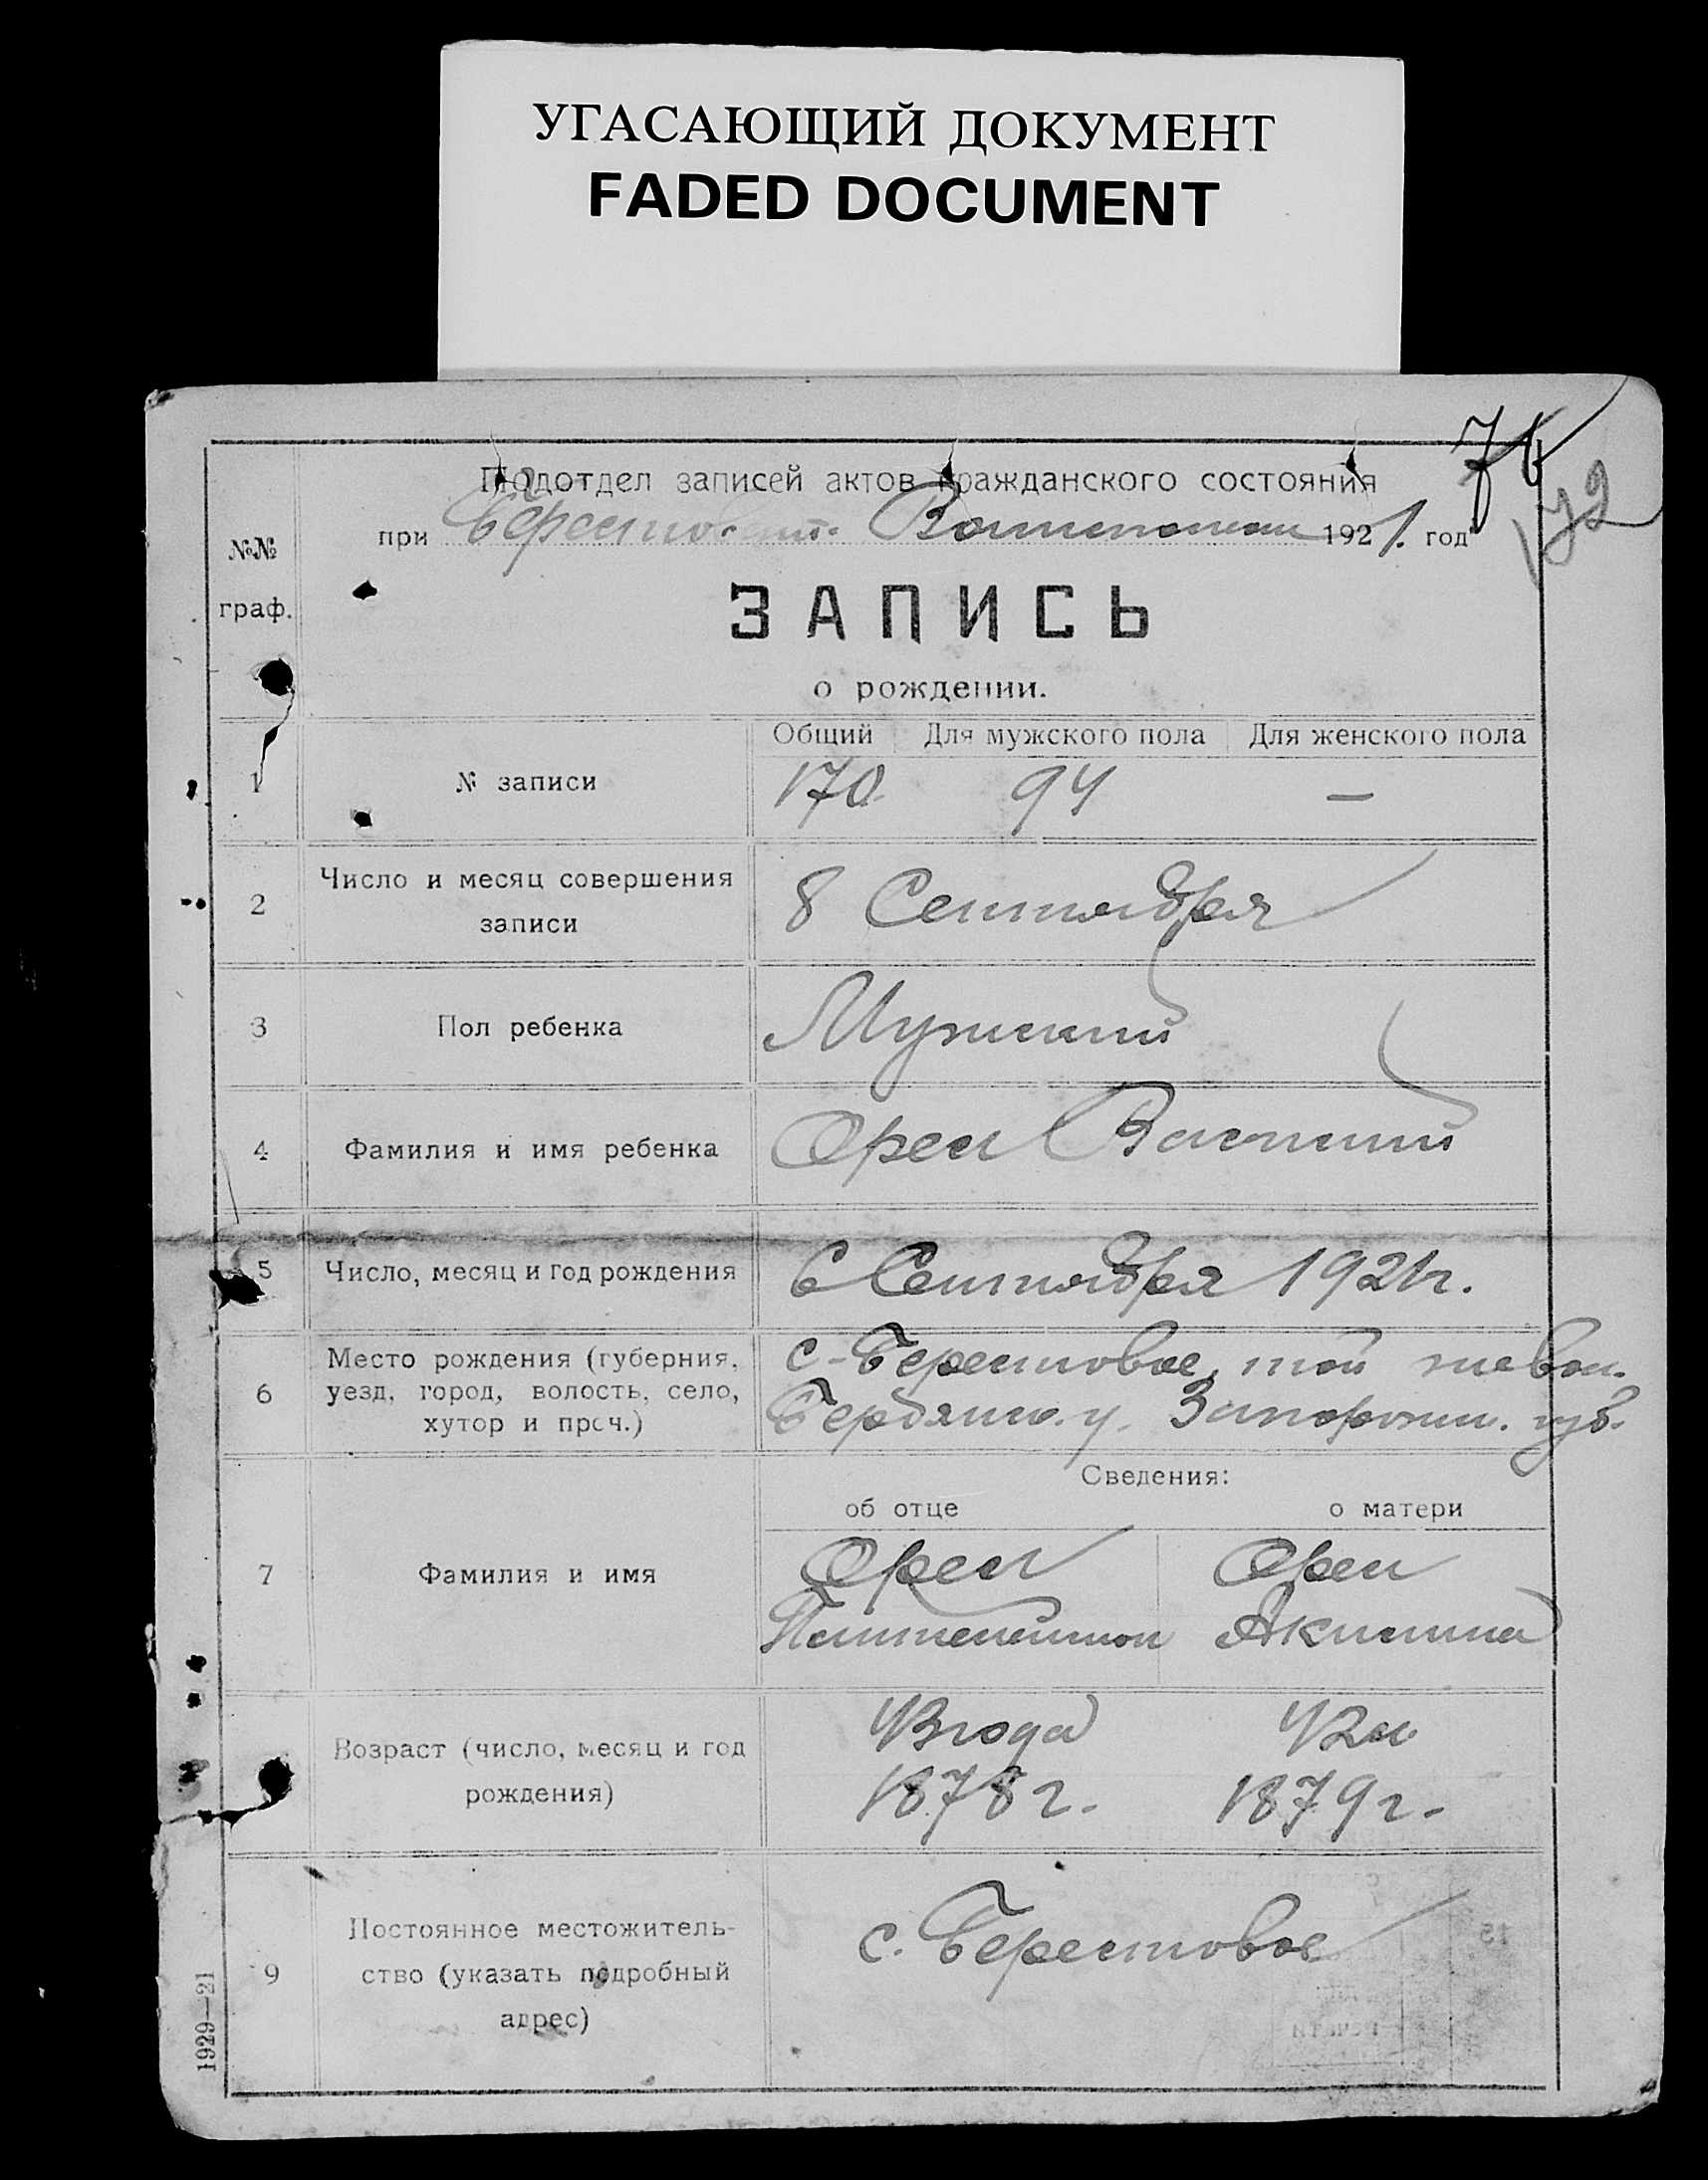 УГАСАЮЩИЙ ДОКУМЕНТ
FADED DOCUMENT
76
142
Подотдел записей актов гражданского состояния
при Берестовск. Волисполкоме 1921. год
№№
граф.
ЗАПИСЬ
о рождении.
Общий Для мужского пола Для женского пола
1 № записи 170 94 —
2 Число и месяц совершения
записи
8 Сентября
3 Пол ребенка Мужский
4 Фамилия и имя ребенка Орел Василий
5 Число, месяц и год рождения 6 Сентября 1921 г.
6 Место рождения (губерния,
уезд, город, волость, село,
хутор и проч.)
с-Берестовое, той же вол.
Бердянск. у. Запорожск. губ.
Сведения:
об отце о матери
7 Фамилия и имя
Орел Орел
Пантелеймон Акилина
Возраст (число, месяц и год
рождения)
43 года 42 л.
1878 г. 1879 г.
9 Постоянное местожитель-
ство (указать подробный
адрес)
с. Берестовое
1929—21